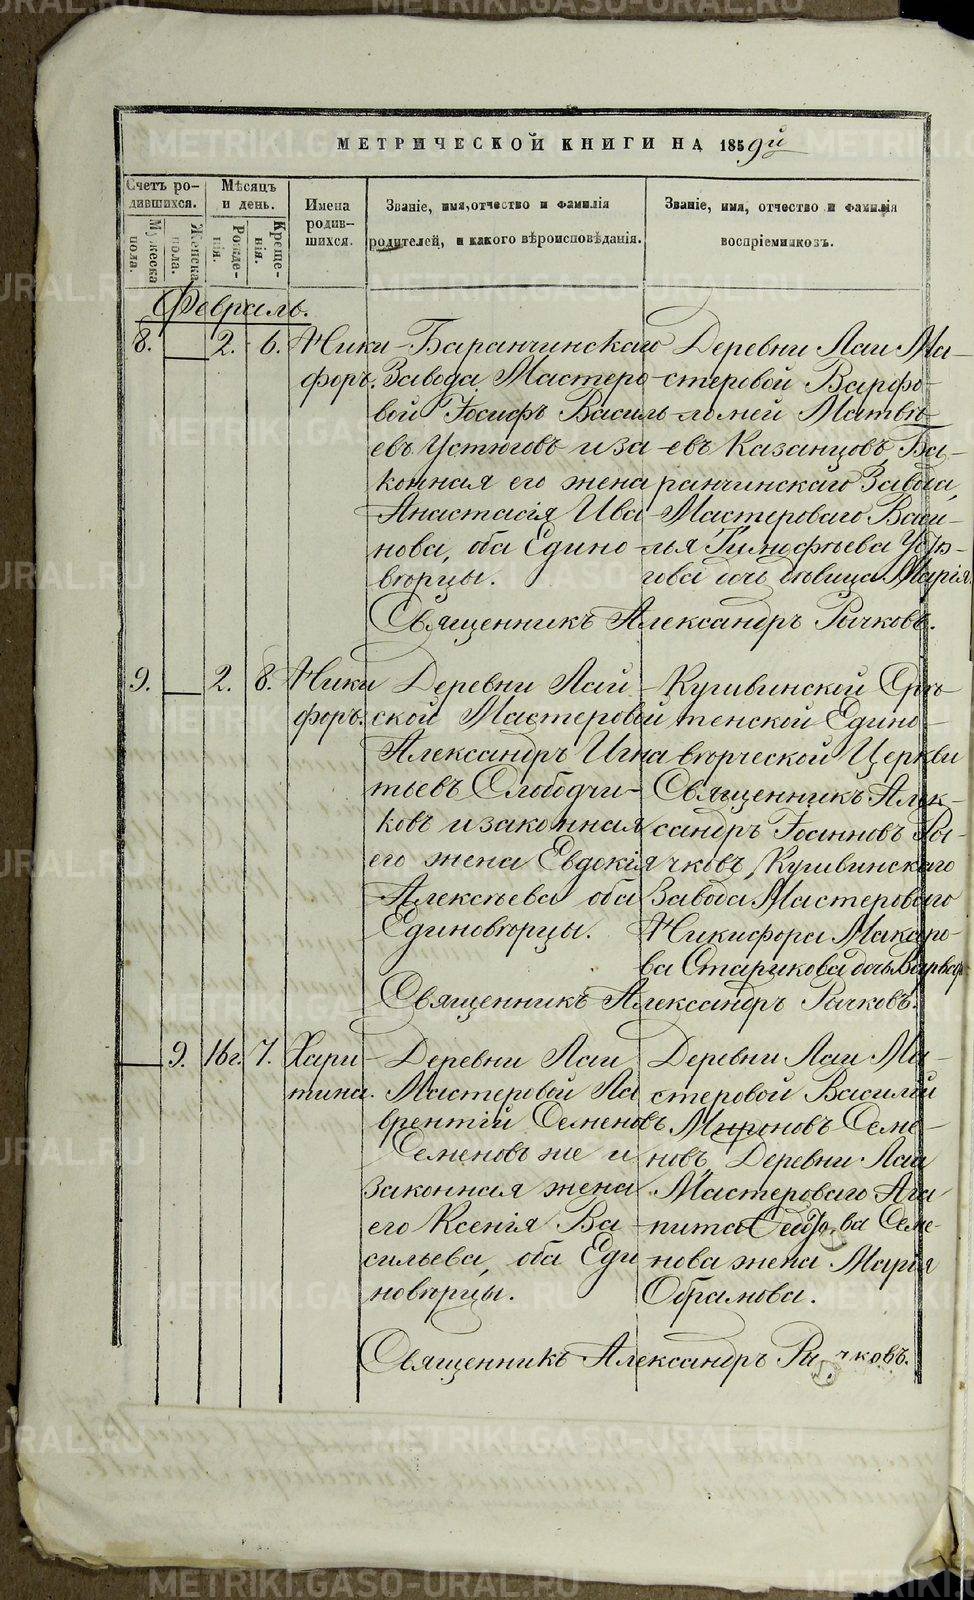 МЕТРИЧЕСКОЙ КНИГИ НА 1859й
Счетъ ро-
дившихся.
Мужеска пола.
Женска пола.
Мѣсяцъ
и день.
Рожде-
нія.
Креще-
нія.
Имена
родив-
шихся.
Званіе, имя, отчество и фамилія
родителей, и какого вѣроисповѣданія.
Званіе, имя, отчество и фамилія
воспріемниковъ.
Февраль.
8. — 2. 6. Ники-
форъ.
Баранчинскаго
Завода Мастеро-
вой Іосифъ Василь-
евъ Устюговъ и за-
конная его жена
Анастасія Ива-
нова, оба Едино-
вѣрцы.
Деревни Лаи Ма-
стеровой Варфо-
ломей Матвѣ-
евъ Казанцовъ, Ба-
ранчинскаго Завода,
Мастероваго Васи-
лья Тимофѣева Устю-
гова дочь дѣвица Марія.
Священникъ Александръ Рычковъ.
9. — 2. 8. Ники
форъ.
Деревни Лай-
ской Мастеровой
Александръ Игна-
тьевъ Слободчи-
ковъ и законная
его жена Евдокія
Алексѣева оба
Единовѣрцы.
Кушвинской Срѣ-
тенской Едино-
вѣрческой Церкви
Священникъ Алек-
сандръ Іоанновъ Ры-
чковъ, Кушвинскаго
Завода Мастероваго
Никифора Макаро-
ва Старикова дочь Варвара
Священникъ Александръ Рычковъ.
— 9. 16г. 7. Хари-
тина.
Деревни Лаи
Мастеровой Ла-
врентій Семеновъ
Семеновъ же и
законная жена
его Ксенія Ва-
сильева, оба Еди
новѣрцы.
Деревни Лаи Ма-
стеровой Василій
Мироновъ Семе-
новъ, Деревни Лаи
Мастероваго Ага-
пита Семе-
нова жена Марія
Обрамова.
Священникъ Александръ Рычковъ.
METRIKI.GASO-URAL.RU